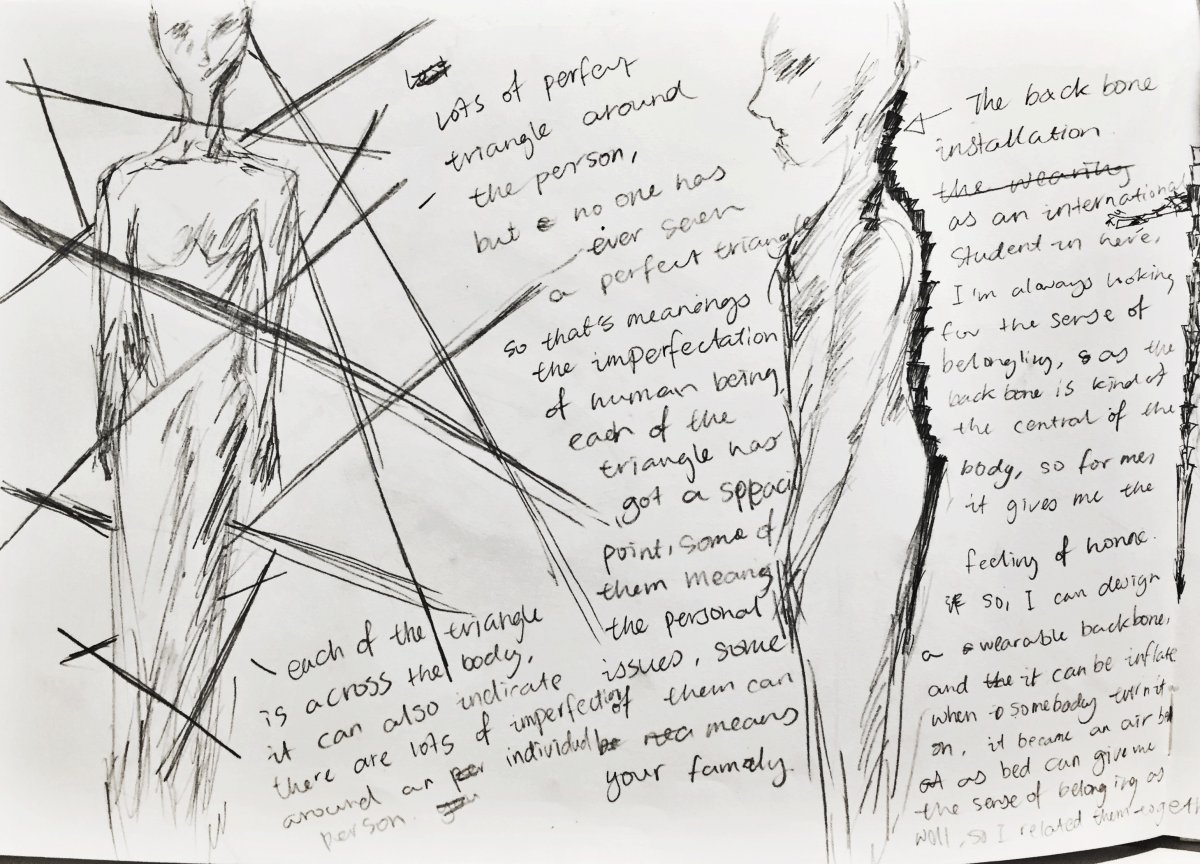 lots of perfect
triangle around
the person,
but no one has
ever seen
a perfect triangle
so that's meanings
the imperfectation
of human being,
each of the
triangle has
got a
point, some of
them means
the personal
issues, some
of them can
means
your family.
each of the triangle
is across the body,
it can also indicate
there are lots of imperfection
around an individual
person.
The back bone
installation
the wearing
as an international
student in here,
I'm always looking
for the sense of
belongling, as the
back bone is kind of
the central of the
body, so for me,
it gives me the
feeling of home.
so, I can design
a wearable backbone,
and the it can be inflate
when somebody turn it
on, it became an air bed
as bed can give me
the sense of belonging as
well, so I related them together